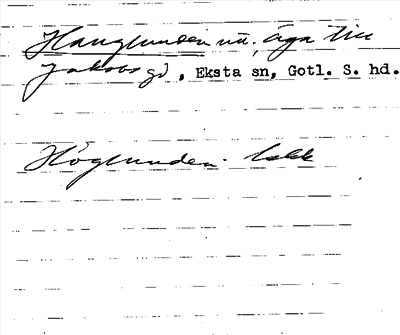 Hauglunden nu. äga till
Jakobs gd, Eksta sn, Gotl. S. hd.
Höglunden.